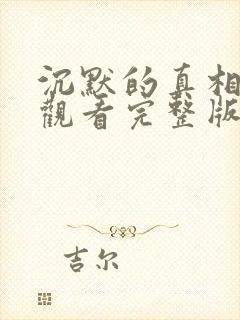 沉默的真相
觀看完整版
吉尔